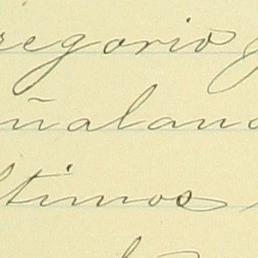 regorio
ñaland
ltimos